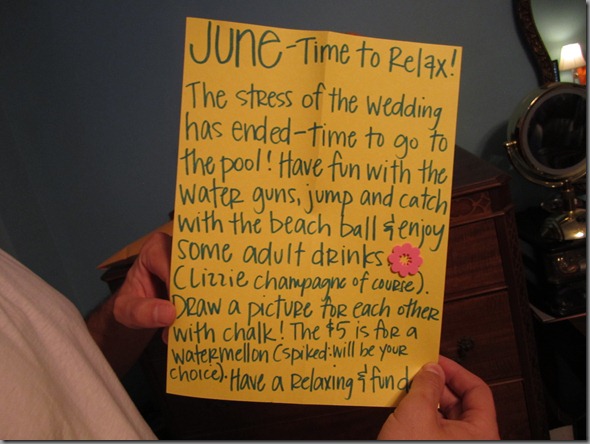 JUNE-Time to Relax!
The stress of the wedding
has ended-time to go to
the pool! Have fun with the
water guns, jump and catch
with the beach ball & enjoy
some adult drinks
(Lizzie champagne of course).
Draw a picture for each other
with chalk! The $5 is for a
watermellon (spiked: will be your
choice). Have a relaxing & fun